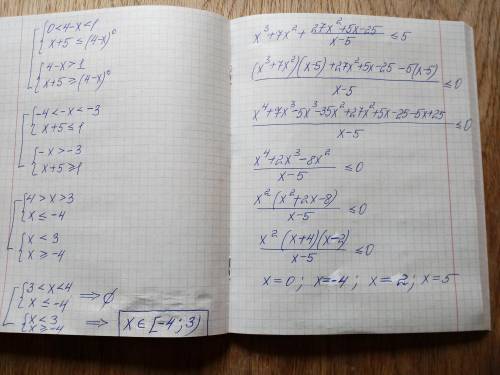 0<4-x<1
x+5≤(4-x)⁰
4-x>1
x+5≥(4-x)⁰
-4<-x<-3
x+5≤1
-x>-3
x+5≥1
4>x>3
x≤-4
x<3
x≥-4
3<x<4
x≤-4 ⇒ ∅
x<3
x≥-4 ⇒ x∈[-4;3)
x³+7x²+(27x²+5x-25)/(x-5)≤5
((x³+7x²)(x-5)+27x²+5x-25-5(x-5))/(x-5)≤0
(x⁴+7x³-5x³-35x²+27x²+5x-25-5x+25)/(x-5)≤0
(x⁴+2x³-8x²)/(x-5)≤0
(x²(x²+2x-8))/(x-5)≤0
(x²(x+4)(x-2))/(x-5)≤0
x=0; x=-4; x=2; x=5